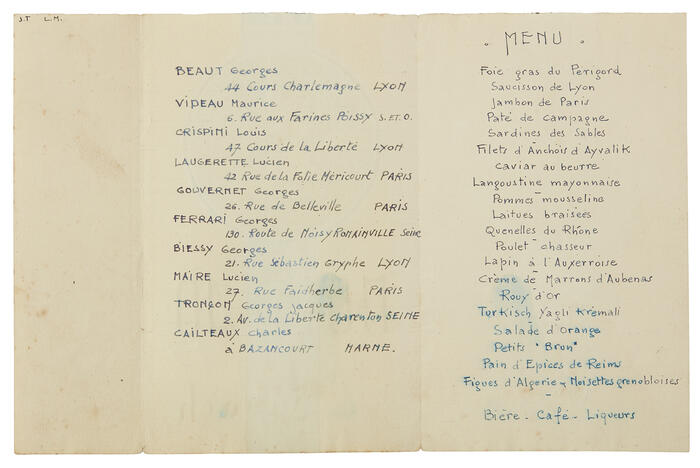 J.T L.M.
BEAUT Georges
44 Cours Charlemagne LYON
VIDEAU Maurice
6. Rue aux Farines Poissy S.ET.O.
CRISPINI Louis
47 Cours de la Liberté LYON
LAUGERETTE Lucien
42 Rue de la Folie Méricourt PARIS
GOUVERNET Georges
26. Rue de Belleville PARIS
FERRARI Georges
130. Route de Noisy ROMAINVILLE Seine
BIESSY Georges
21. Rue Sébastien Gryphe LYON
MAIRE Lucien
27. Rue Faidherbe PARIS
TRONÇON Georges Jacques
2. Av. de la Liberté Charenton SEINE
CAILTEAUX Charles
à BAZANCOURT MARNE.
. MENU .
Foie gras du Périgord
Saucisson de Lyon
Jambon de Paris
Paté de campagne
Sardines des Sables
Filets d'Anchois d'Ayvalik
Caviar au beurre
Langoustine mayonnaise
Pommes mousseline
Laitues braisées
Quenelles du Rhône
Poulet chasseur
Lapin à l'Auxerroise
Crème de Marrons d'Aubenas
Rouy d'or
Turkisch Yagli Kremali
Salade d'Orange
Petits "Brun"
Pain d'Epices de Reims
Figues d'Algerie - Noisettes grenobloises
Bière - Café - Liqueurs